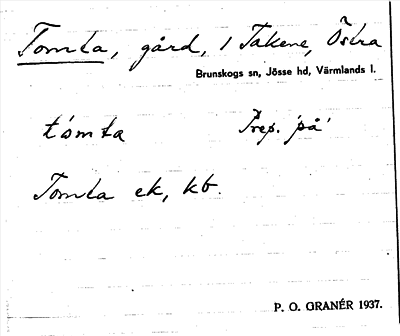 Tomta, gård, i Takene, Östra
Brunskogs sn, Jösse hd, Värmlands l.
tómta Prep. 'på'
Tomta ek, kb.
P. O. GRANÉR 1937.